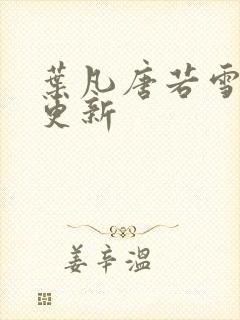 葉凡唐若雪
更新
姜辛溫